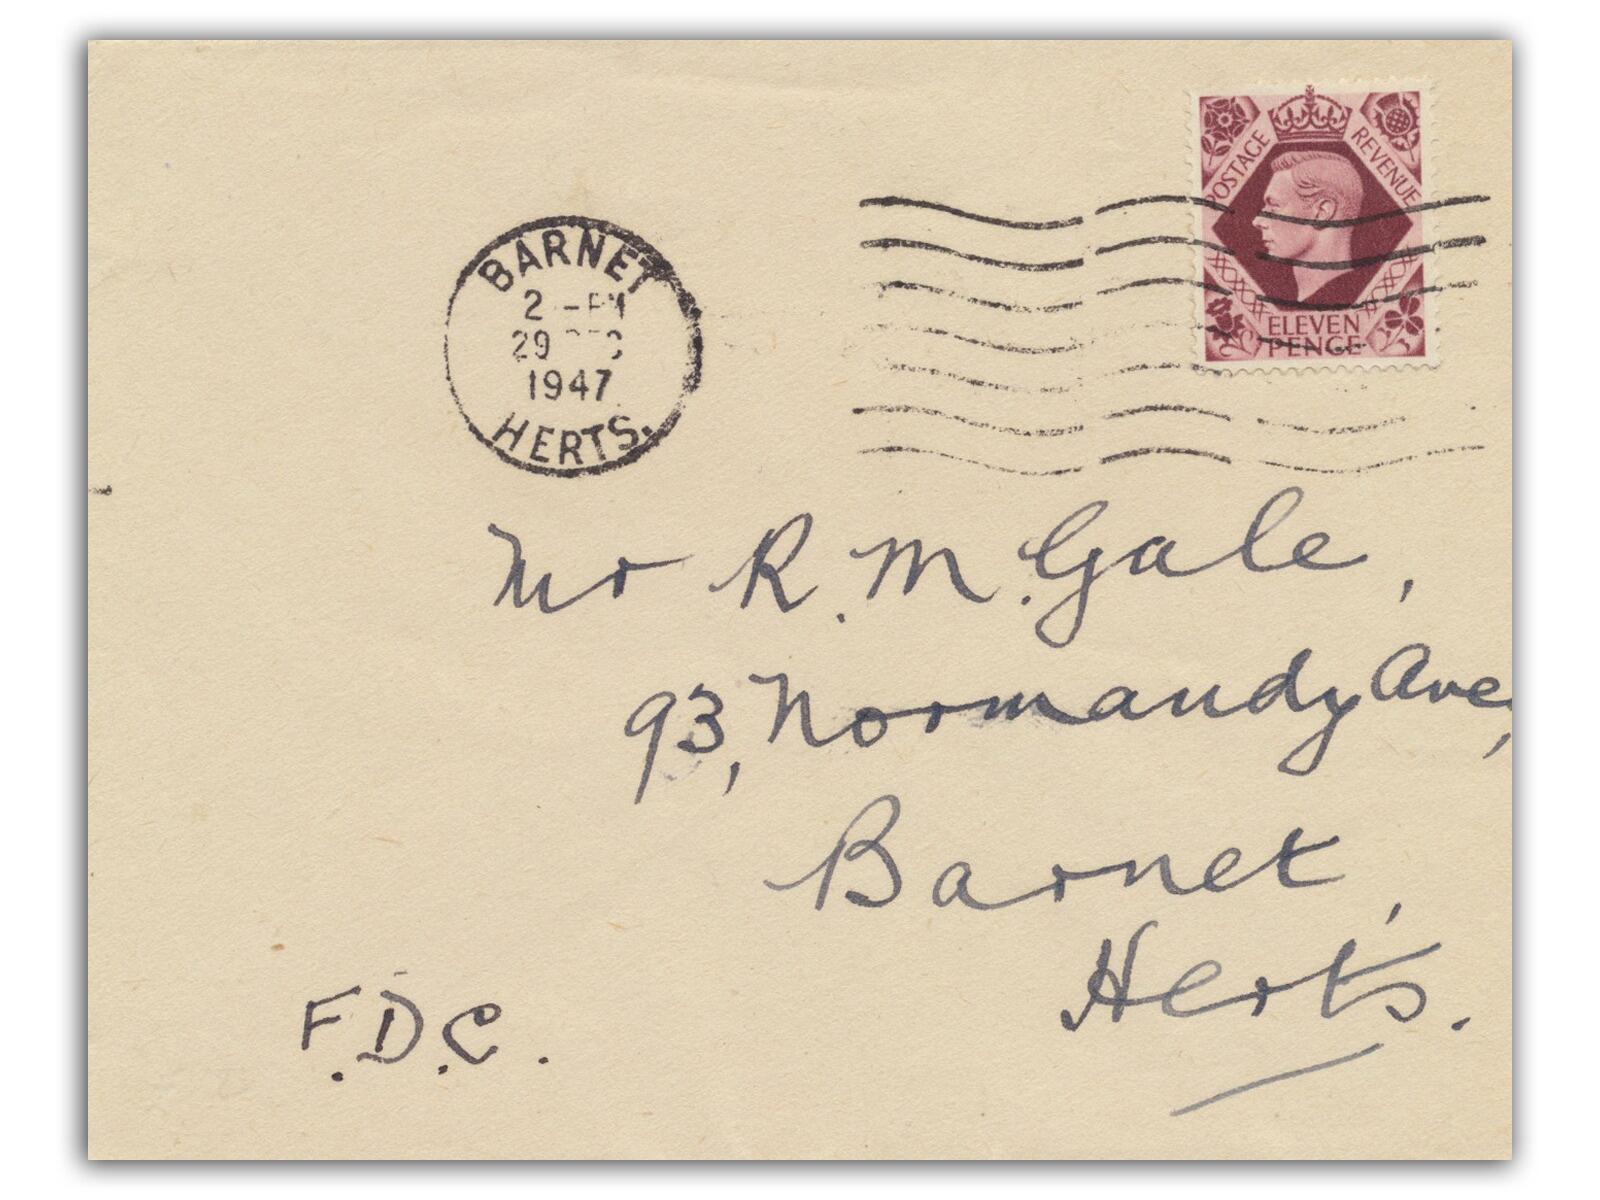 POSTAGE REVENUE
ELEVEN
PENCE
BARNET
2 - PM
29 DEC
1947
HERTS.
Mr R. M. Gale,
93, Normandy Ave,
Barnet,
Herts.
F.D.C.